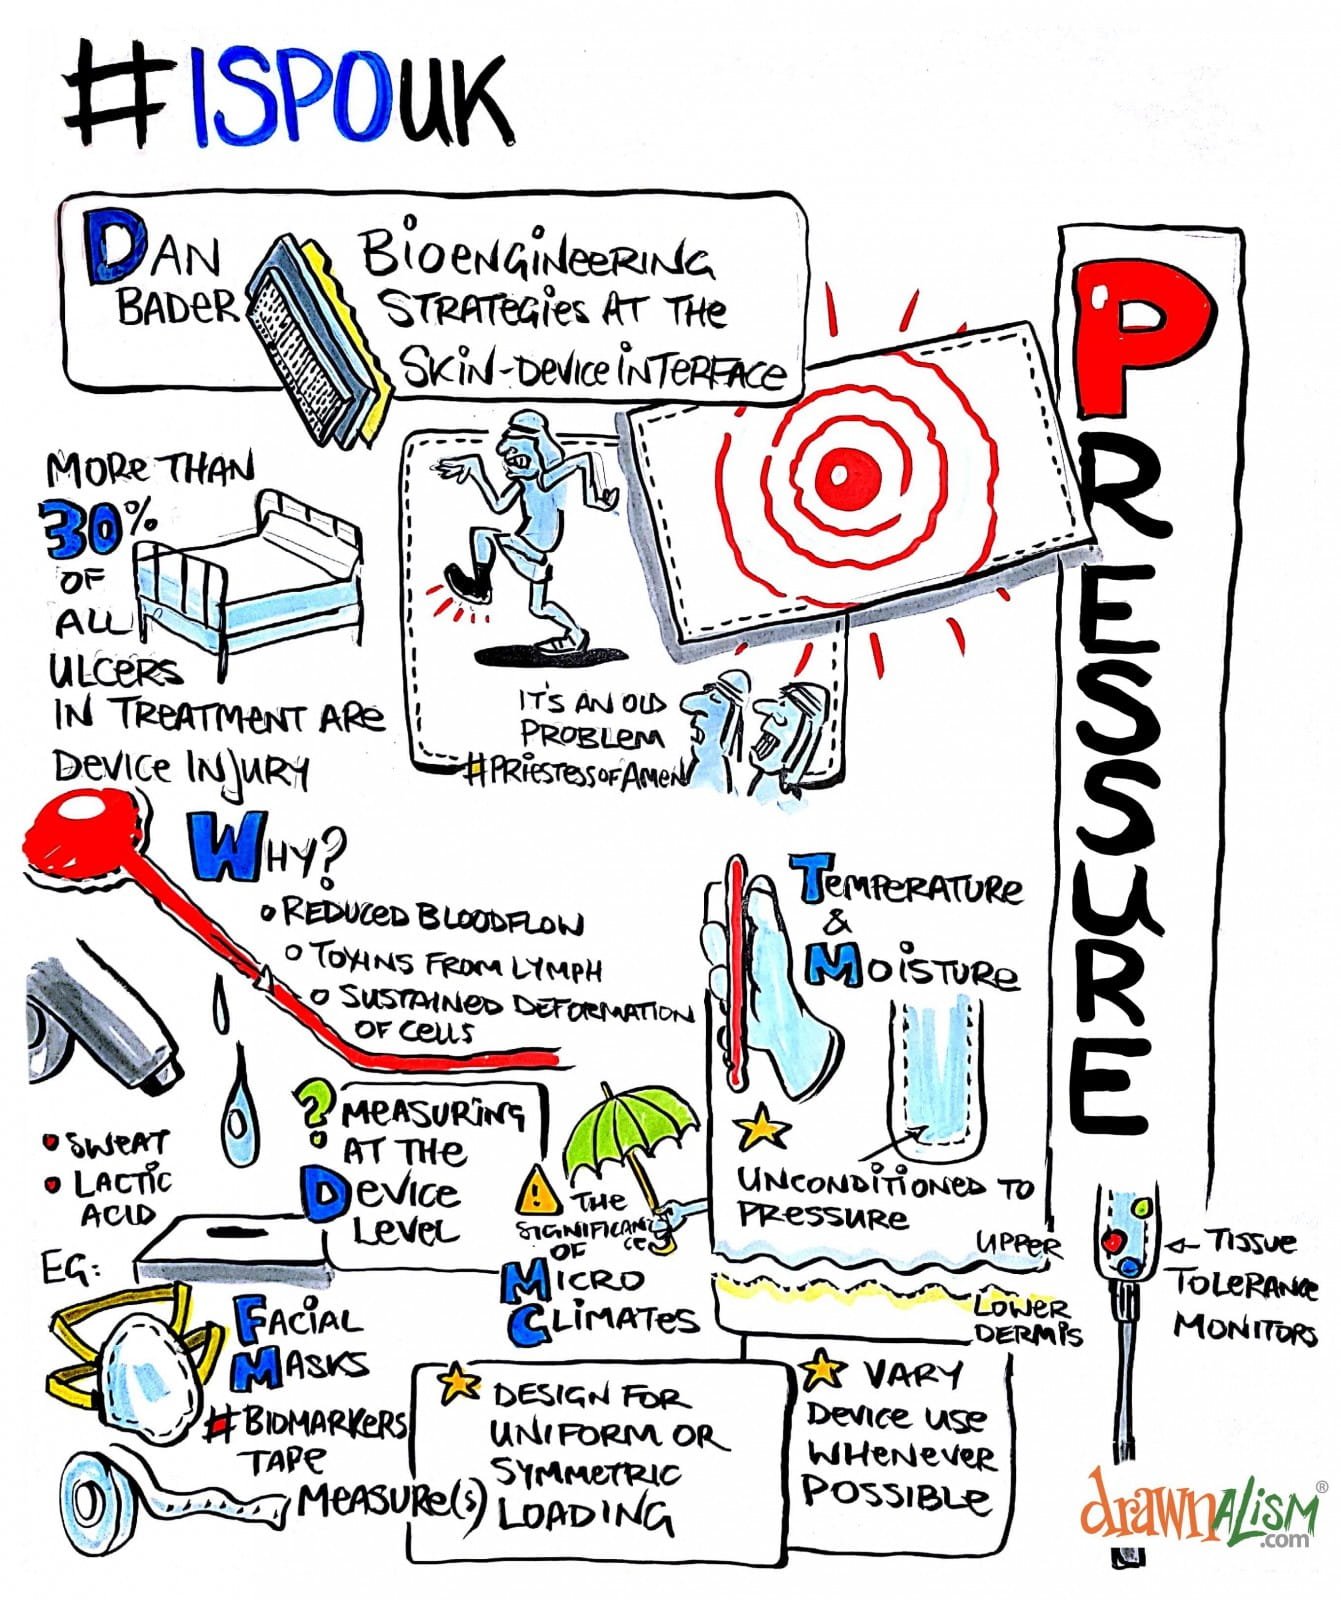 #ISPOUK
DAN
BADER
BIOENGINEERING
STRATEGIES AT THE
SKIN-DEVICE INTERFACE
PRESSURE
MORE THAN
30%
OF
ALL
ULCERS
IN TREATMENT ARE
DEVICE INJURY
IT'S AN OLD
PROBLEM
#PRIESTESSOFAMEN
WHY?
REDUCED BLOODFLOW
TOXINS FROM LYMPH
SUSTAINED DEFORMATION
OF CELLS
TEMPERATURE
&
MOISTURE
UNCONDITIONED TO
PRESSURE
UPPER
LOWER
DERMIS
TISSUE
TOLERANCE
MONITORS
SWEAT
LACTIC
ACID
? MEASURING
AT THE
DEVICE
LEVEL
! THE
SIGNIFICAN
CE
OF
MICRO
CLIMATES
EG:
FACIAL
MASKS
#BIOMARKERS
TAPE
MEASURE(S)
DESIGN FOR
UNIFORM OR
SYMMETRIC
LOADING
VARY
DEVICE USE
WHENEVER
POSSIBLE
drawnALISM®
.com